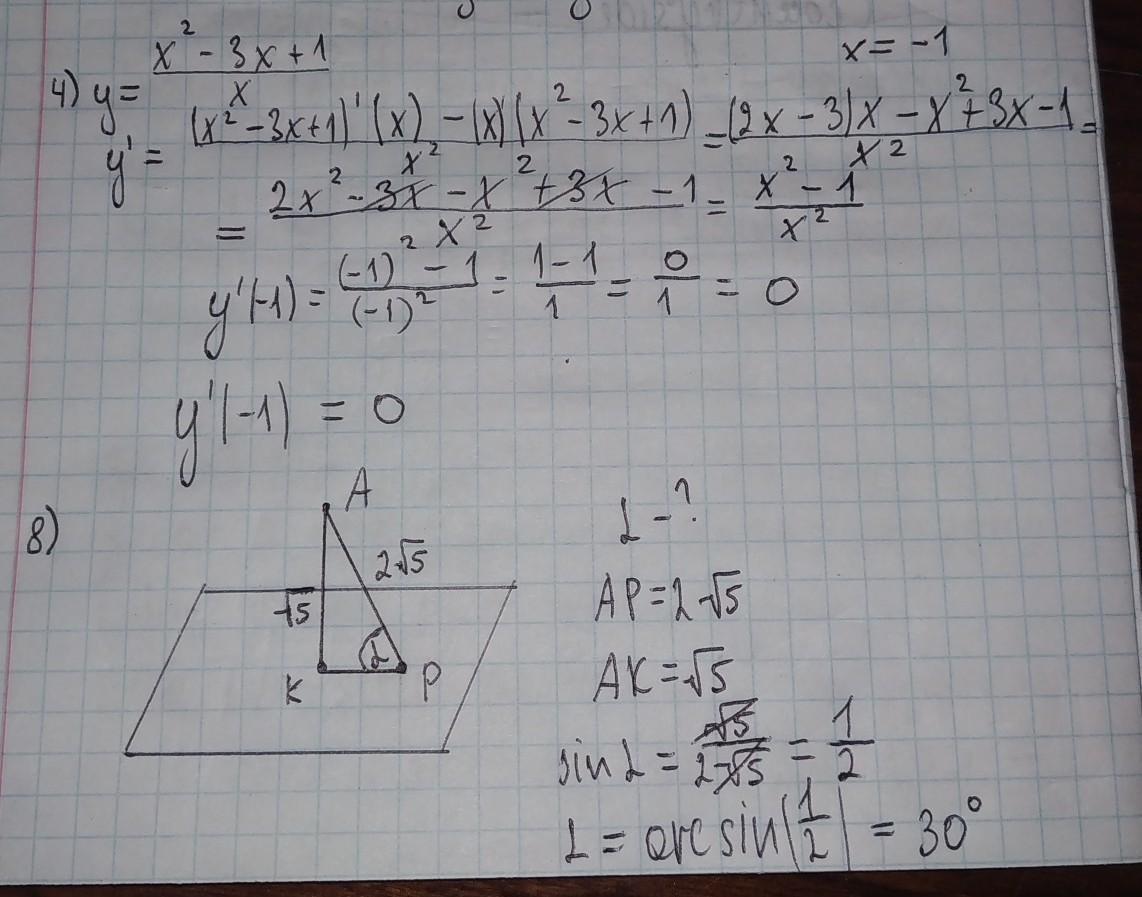 4) y = (x² - 3x + 1)/x    x = -1
y' = ((x² - 3x + 1)'(x) - (x)(x² - 3x + 1))/x² = ((2x - 3)x - x² + 3x - 1)/x² =
= (2x² - 3x - x² + 3x - 1)/x² = (x² - 1)/x²
y'(-1) = ((-1)² - 1)/(-1)² = (1 - 1)/1 = 0/1 = 0
y'(-1) = 0
8) A
2√5
√5
α
K P
α - ?
AP = 2√5
AK = √5
sin α = √5/2√5 = 1/2
α = arcsin(1/2) = 30°